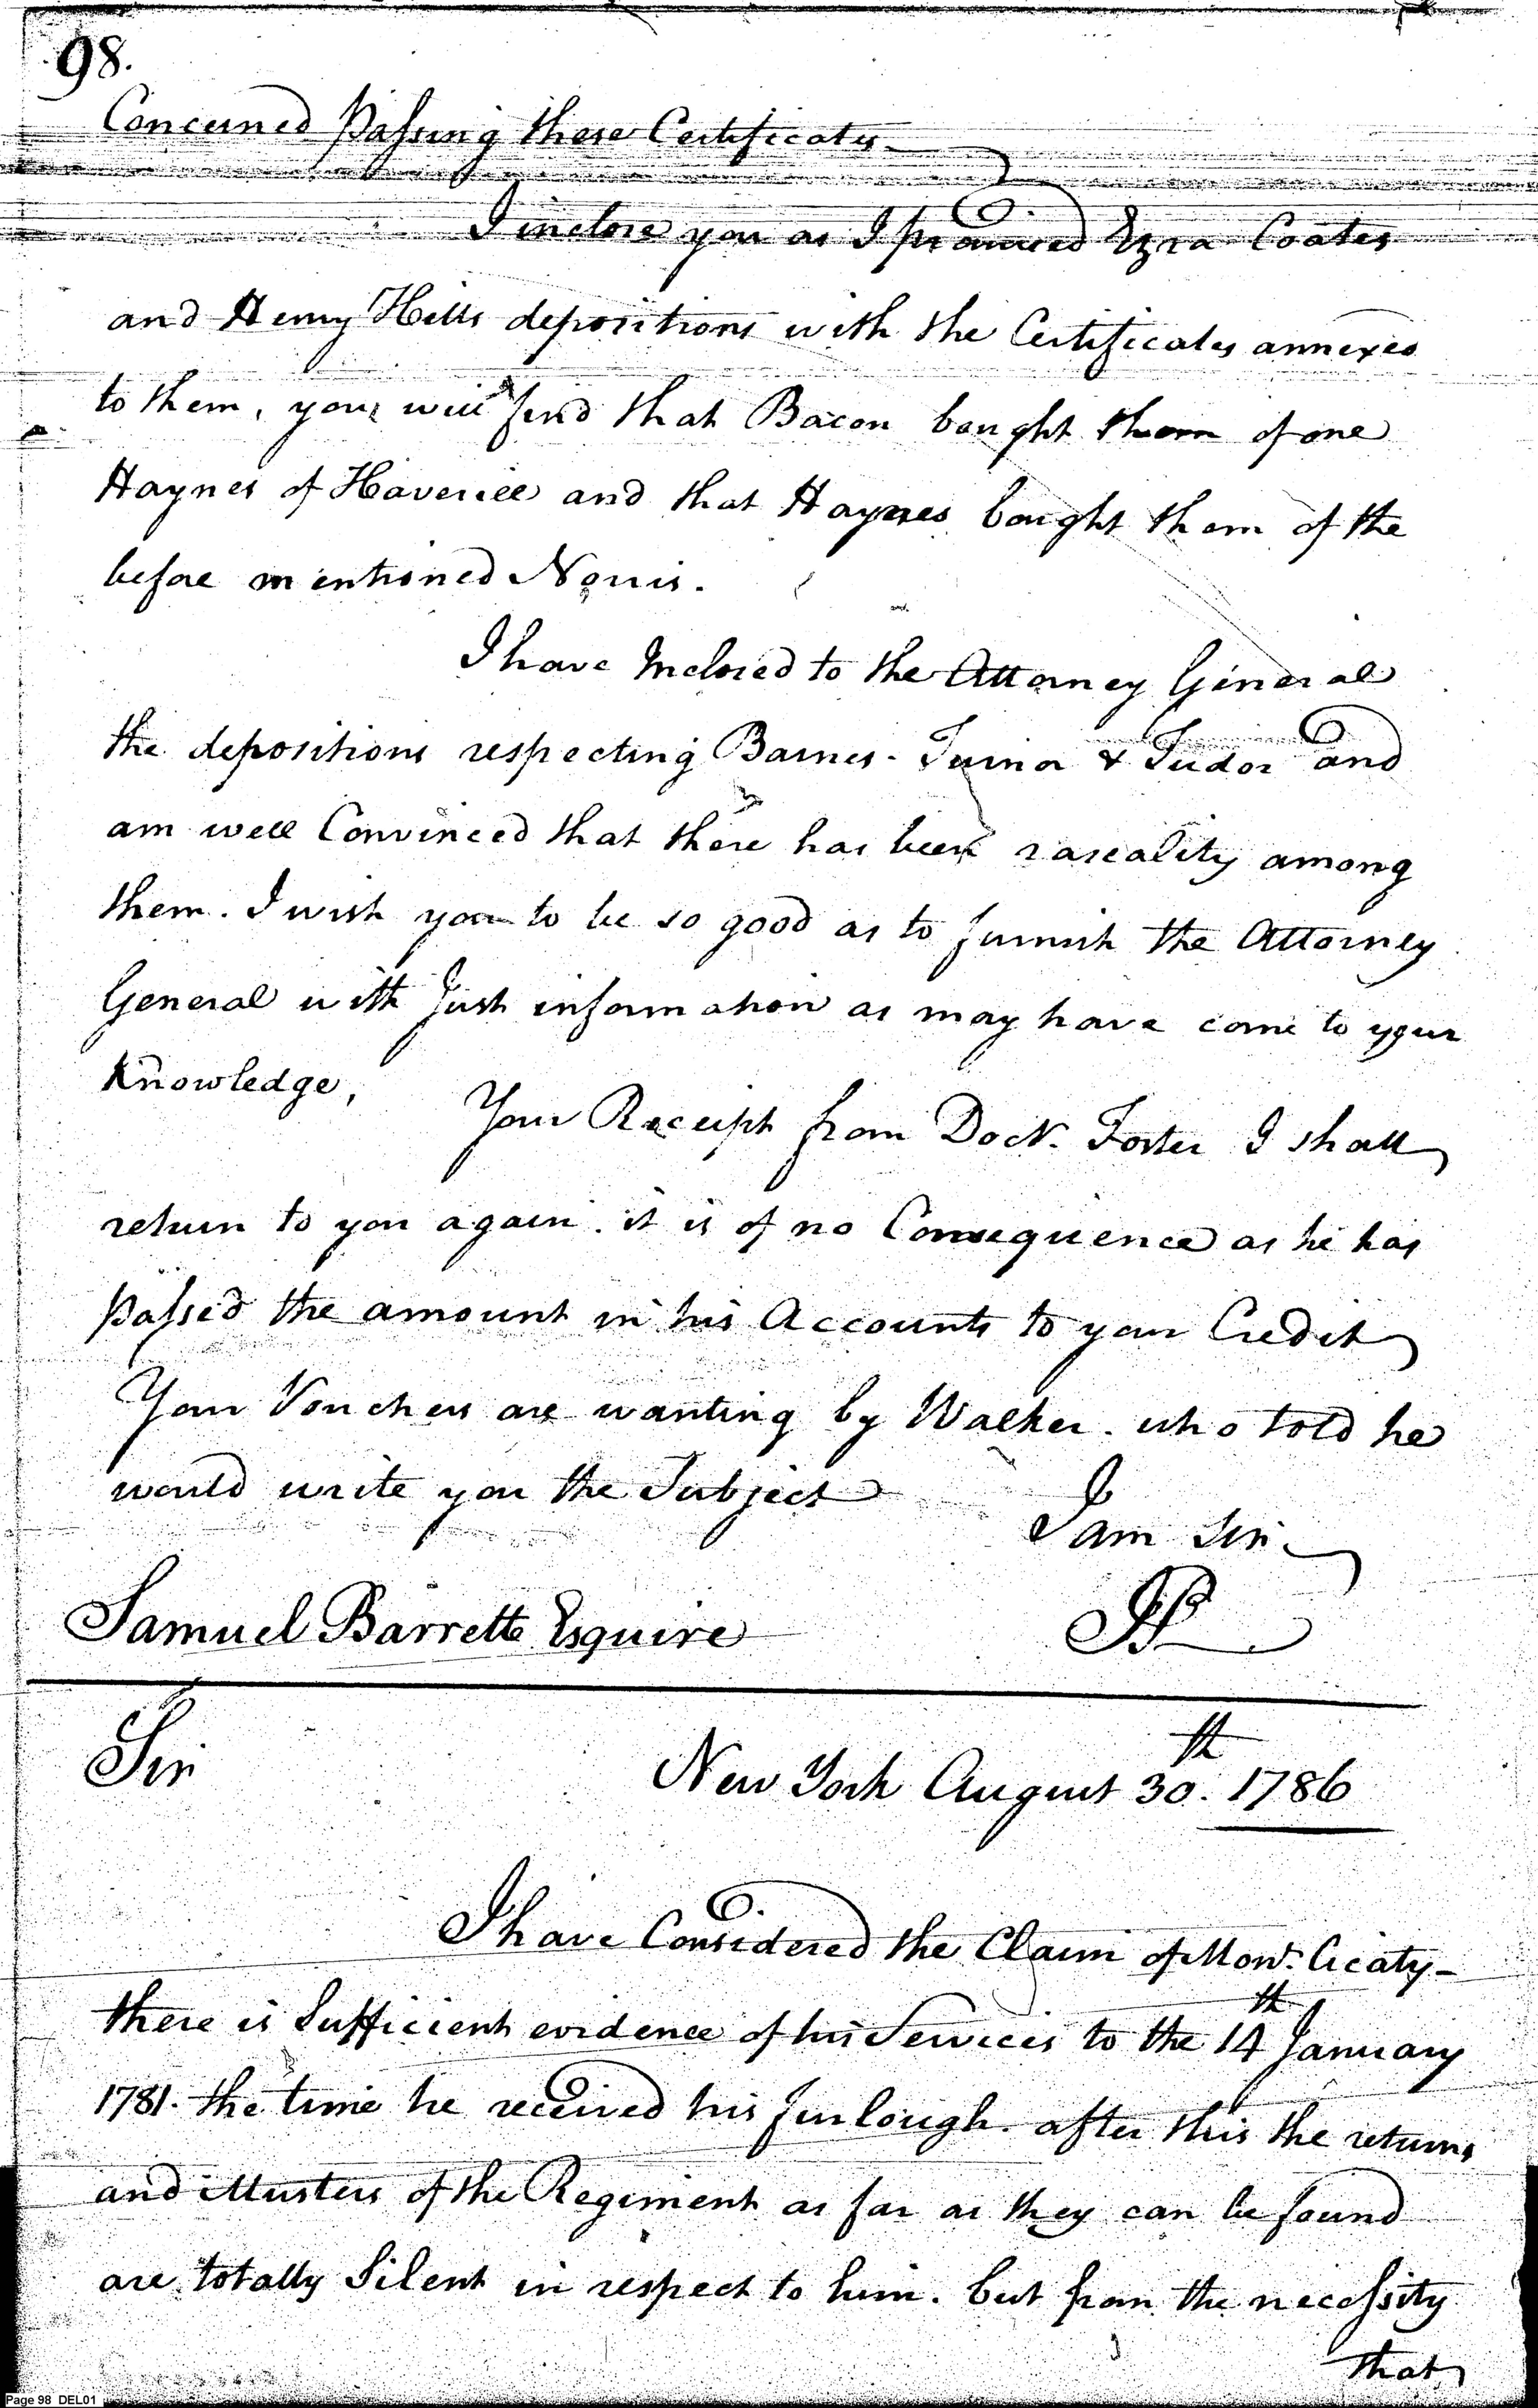 98.
Concerned Passing these Certificates
I inclose you as I promised Ezra Coates
and Henry Hills depositions with the Certificates annexed
to them, you will find that Bacon bought them of one
Haynes of Haverill and that Haynes bought them of the
before mentioned Norris.
I have Inclosed to the Attorney General
the depositions respecting Barnes - Turnor & Tudor and
am well Convinced that there has been rascality among
them. I wish you to be so good as to furnish the Attorney
General with Just information as may have come to your
Knowledge,
Your Receipt from Doctr. Foster I shall
return to you again. it is of no Consequence as he has
Passed the amount in his Accounts to your Credit
Your Vouchers are wanting by Walker. who told he
would write you the Subject
I am Sir
Samuel Barrett Esquire
Sir
New York August 30.th 1786
I have Considered the Claim of Monr.
there is Sufficient evidence of his Services to the 14th January
1781. the time he received his furlough. after this the returns
and Musters of the Regiment as far as they can be found
are totally Silent in respect to him. but from the necessity
that
Page 98 DEL01